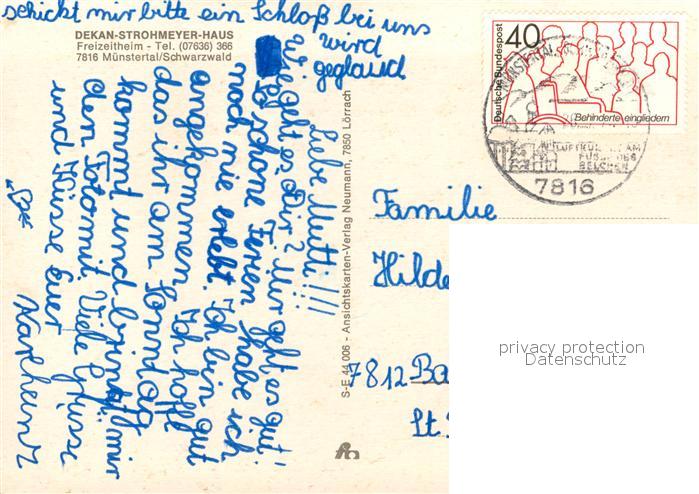 schickt mir bitte ein Schloß bei uns
wird
geglaud
DEKAN-STROHMEYER-HAUS
Freizeitheim - Tel. (07636) 366
7816 Münstertal/Schwarzwald
Liebe Mutti!!!
Wie geht es Dir? Mir geht es gut!
So schöne Ferien habe ich
noch nie erlebt. Ich bin gut
angekommen. Ich hoffe
das ihr am Sonntag
kommt und bringt mir
den Foto mit. Viele Grüsse
und Küsse Euer
Karlheinz
S-E 44 006 - Ansichtskarten-Verlag Neumann, 7850 Lörrach
Deutsche Bundespost
40
Behinderte eingliedern
LUFTKURORT AM
FUSSE DES
BELCHEN
7816
Familie
Hilde
7812 Ba
St.
privacy protection
Datenschutz